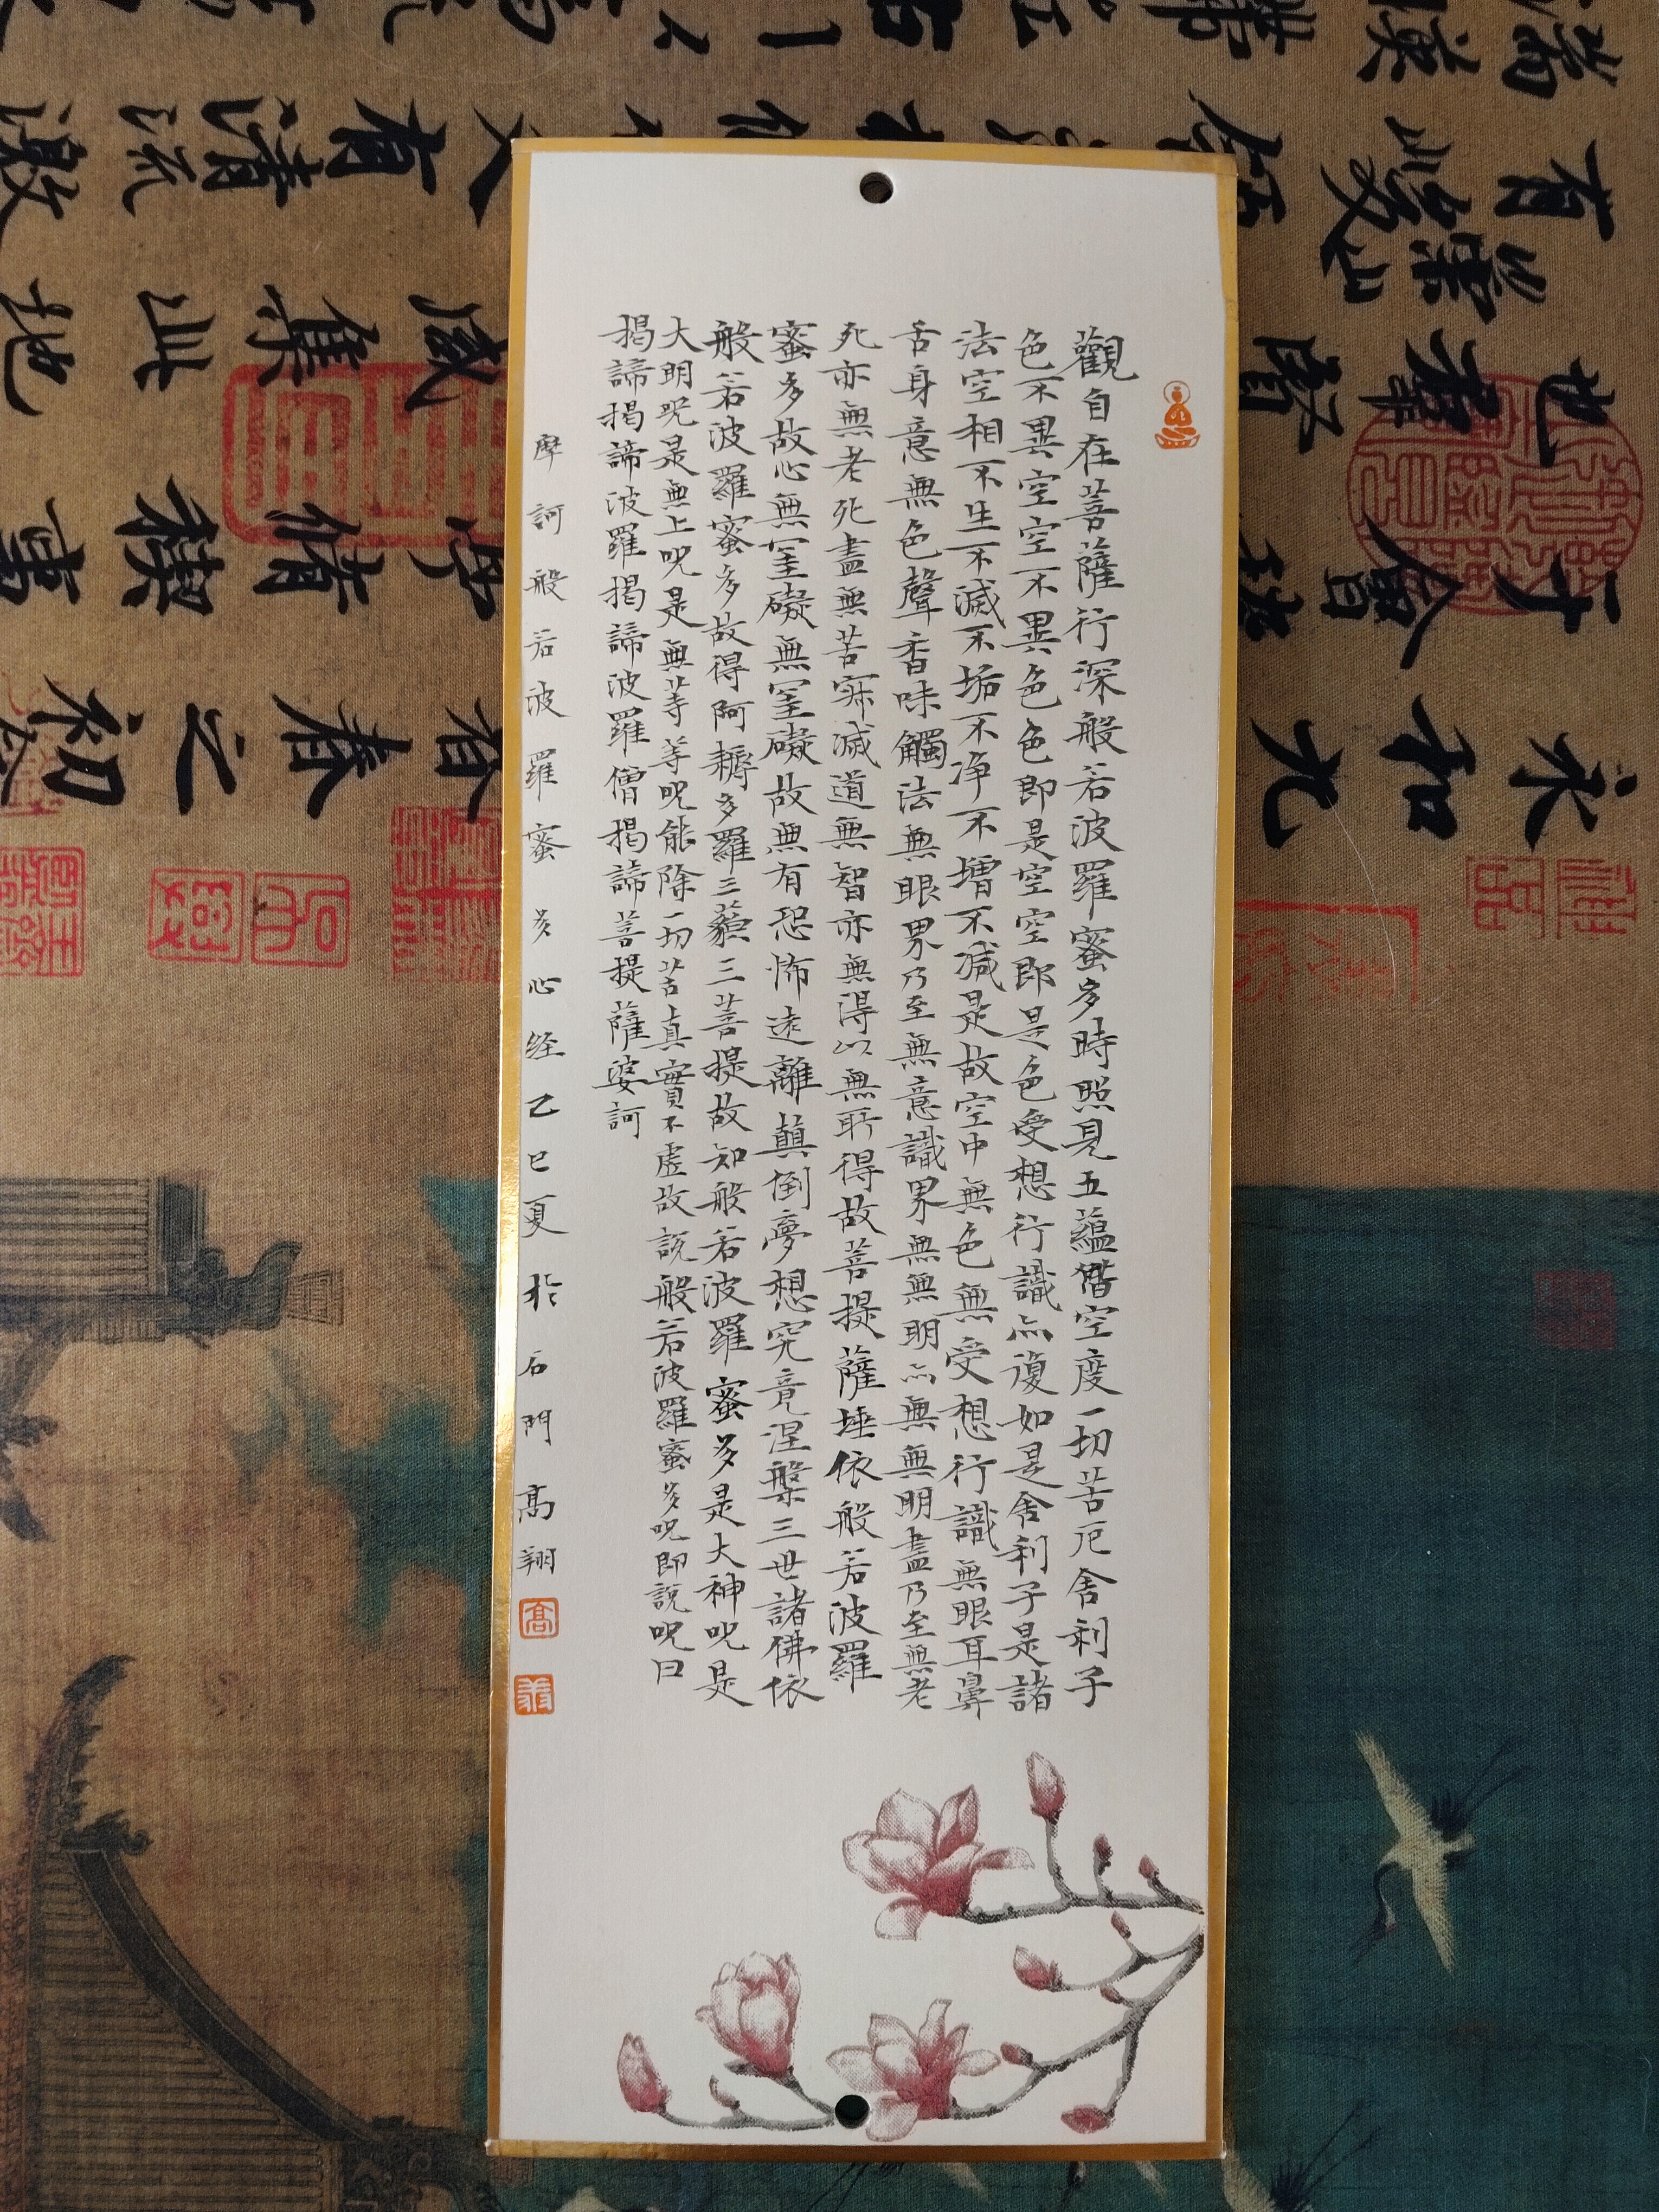 觀自在菩薩行深般若波羅蜜多時照見五蘊皆空度一切苦厄舍利子
色不異空空不異色色即是空空即是色受想行識亦復如是舍利子是諸
法空相不生不滅不垢不净不增不減是故空中無色無受想行識無眼耳鼻
舌身意無色聲香味觸法無眼界乃至無意識界無無明亦無無明盡乃至無老
死亦無老死盡無苦寂滅道無智亦無得以無所得故菩提薩埵依般若波羅
蜜多故心無罣礙無罣礙故無有恐怖遠離顛倒夢想究竟涅槃三世諸佛依
般若波羅蜜多故得阿耨多羅三藐三菩提故知般若波羅蜜多是大神咒是
大明咒是無上咒是無等等咒能除一切苦真實不虛故說般若波羅蜜多咒即說咒曰
揭諦揭諦波羅揭諦波羅僧揭諦菩提薩婆訶
摩訶般若波羅蜜多心经乙巳夏於石門高翔
高
翔
永和九
春之初
于會稽
脩禊事
也羣賢
咸集此地
有崇山峻領
又有清流激